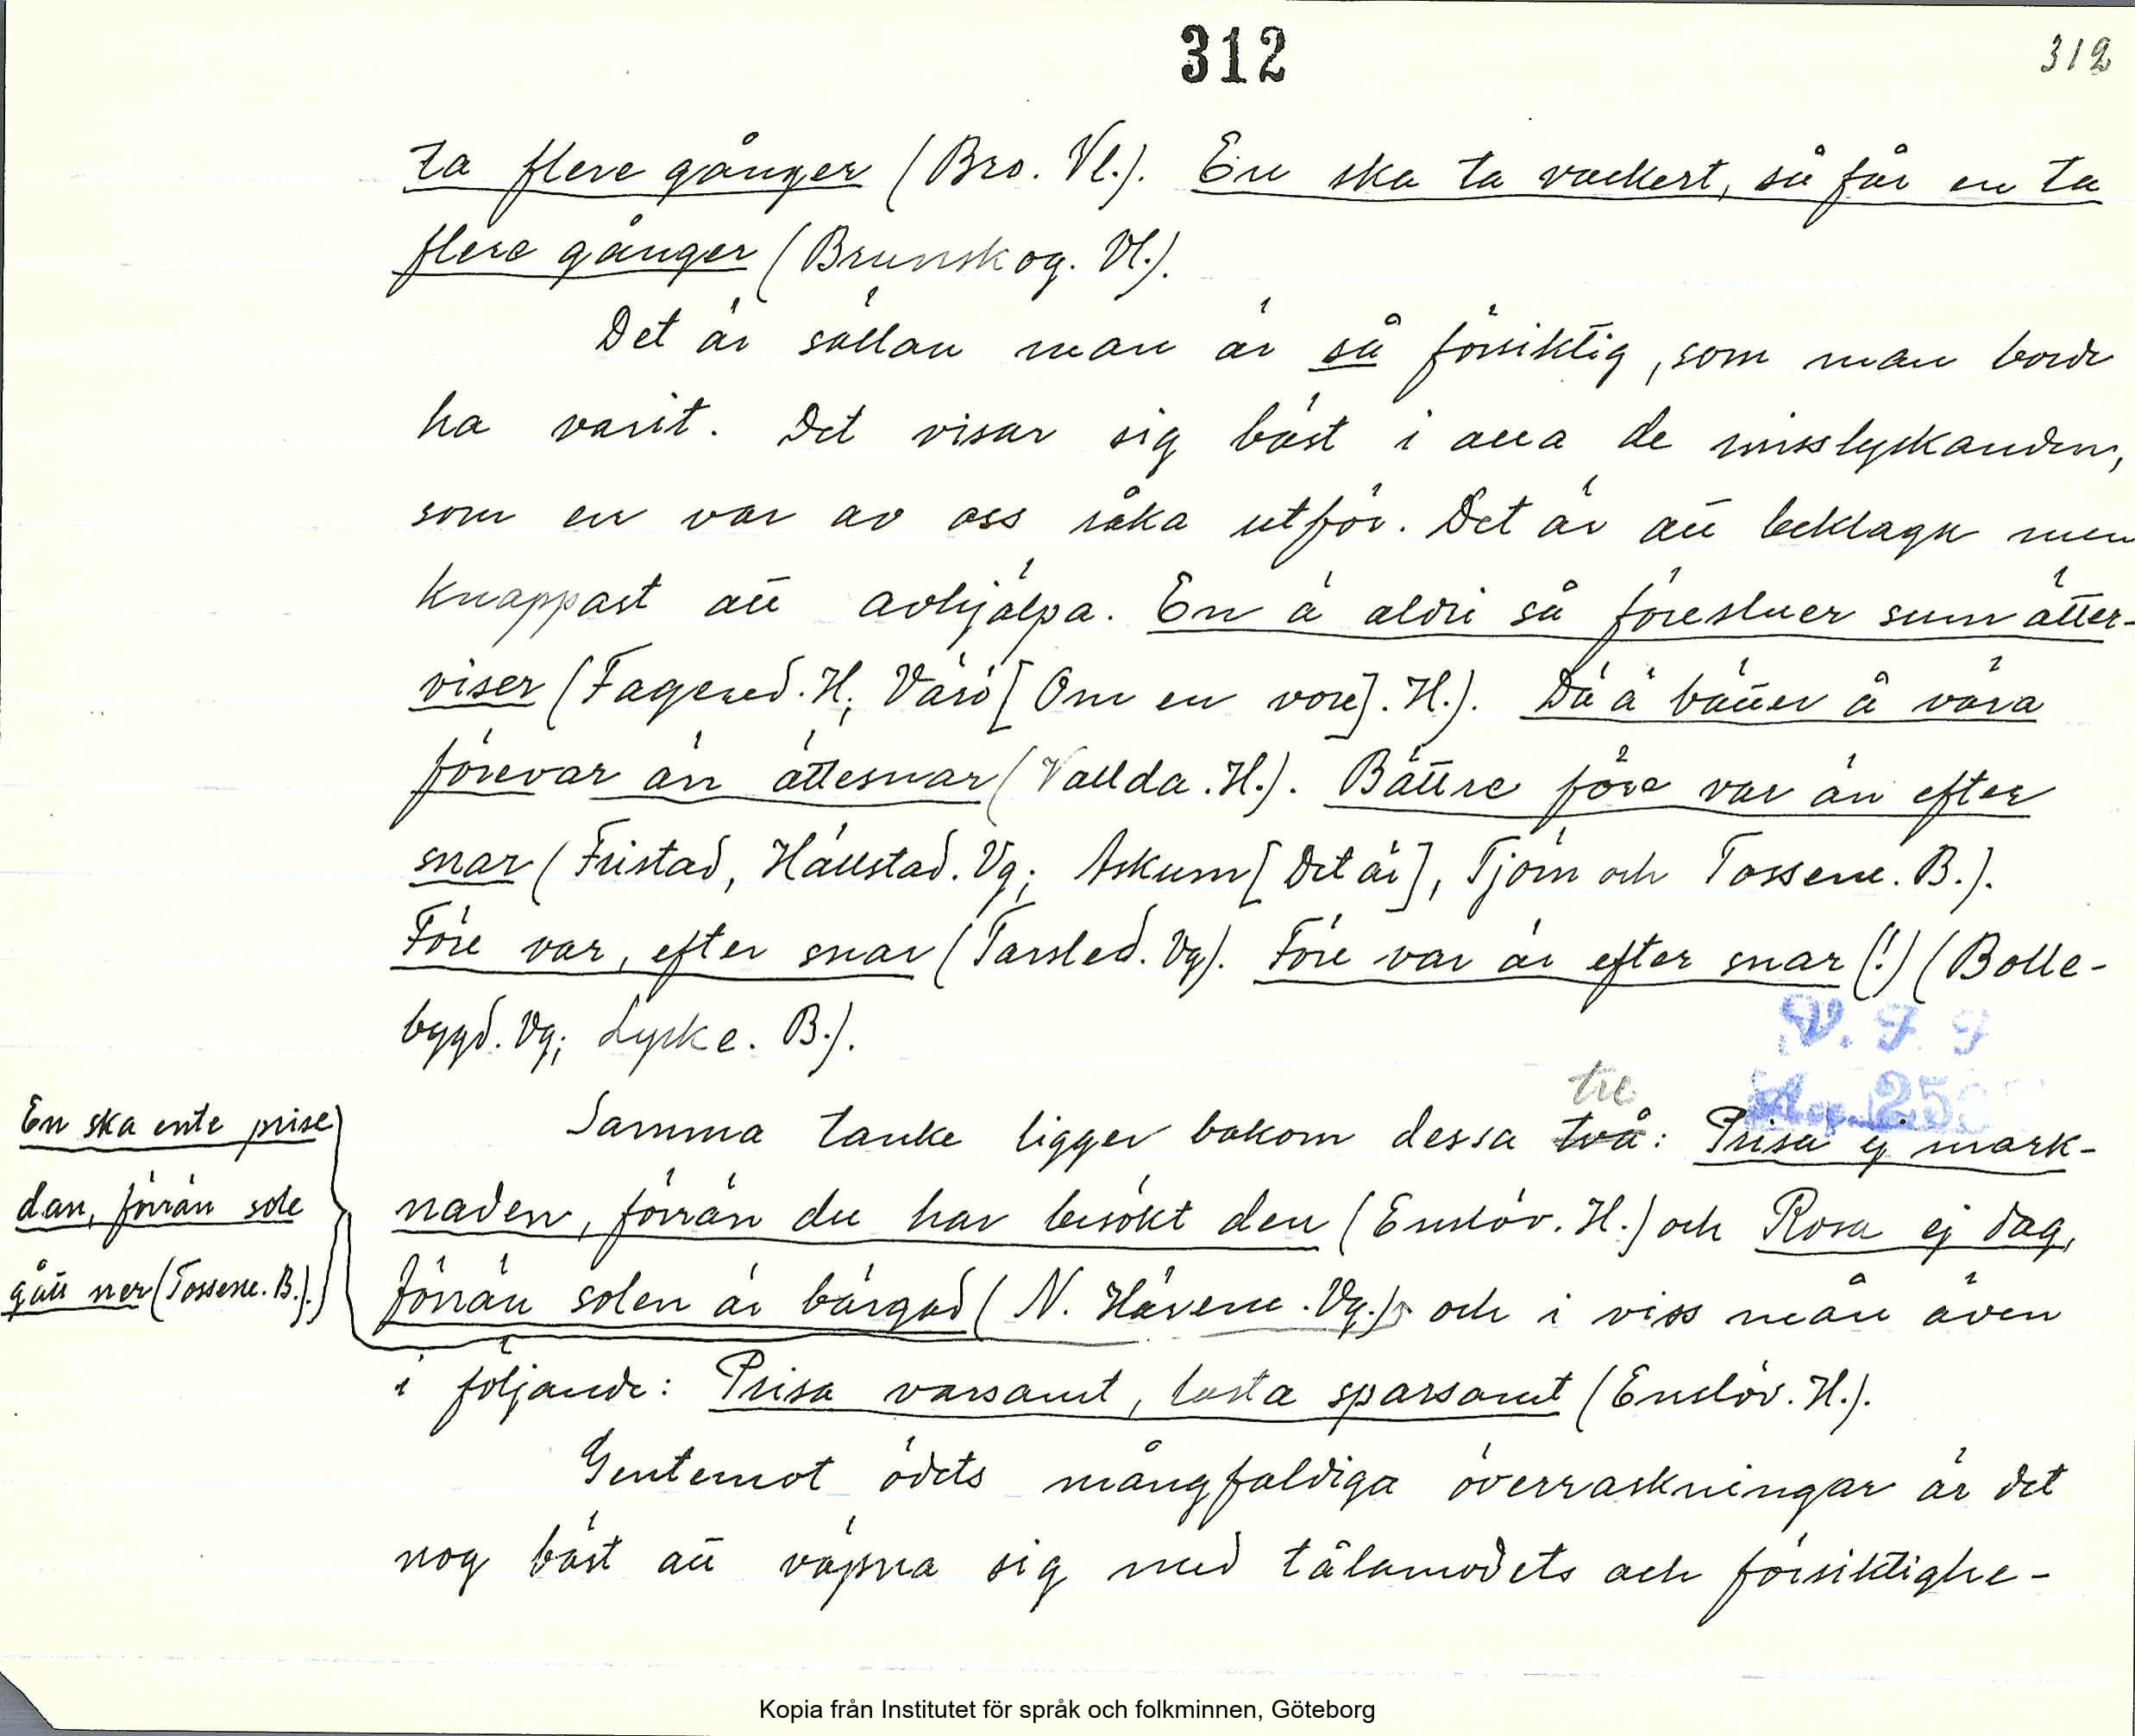 312
312
ta flere gånger (Bro. Vl.). En ska ta vackert, så får en ta
flere gånger (Brunskog. Vl.).
Det är sällan man är så försiktig, som man borde
ha varit. Det visar sig bäst i alla de misslyckanden,
som en var av oss råka utför. Det är att beklaga men
knappast att avhjälpa. En ä aldri så föresluer sum ätter-
viser (Fagered. H; Värö [Om en vore]. H.). Dä ä bätter å våra
förevar än ättesnar (Vallda. H.). Bättre före var än efter
snar (Fristad, Hällstad. Vg; Askum [Det är], Tjörn och Tossene. B.).
Före var, efter snar (Tarsled. Vg). Före var är efter snar (!) (Bolle-
bygd. Vg; Lyse. B.).
V. F. F
tre
Samma tanke ligger bakom dessa två: Prisa ej mark-
naden, förrän du har besökt den (Enslöv. H.) och Rosa ej dag,
förrän solen är bärgad (N. Hävene. Vg.), och i viss mån även
i följande: Prisa varsamt, lasta sparsamt (Enslöv. H.).
Gentemot ödets mångfaldiga överraskningar är det
nog bäst att väpna sig med tålamodets och försiktighe-
En ska ente prise
dan, förrän sole
gått ner (Tossene. B.).
Kopia från Institutet för språk och folkminnen, Göteborg